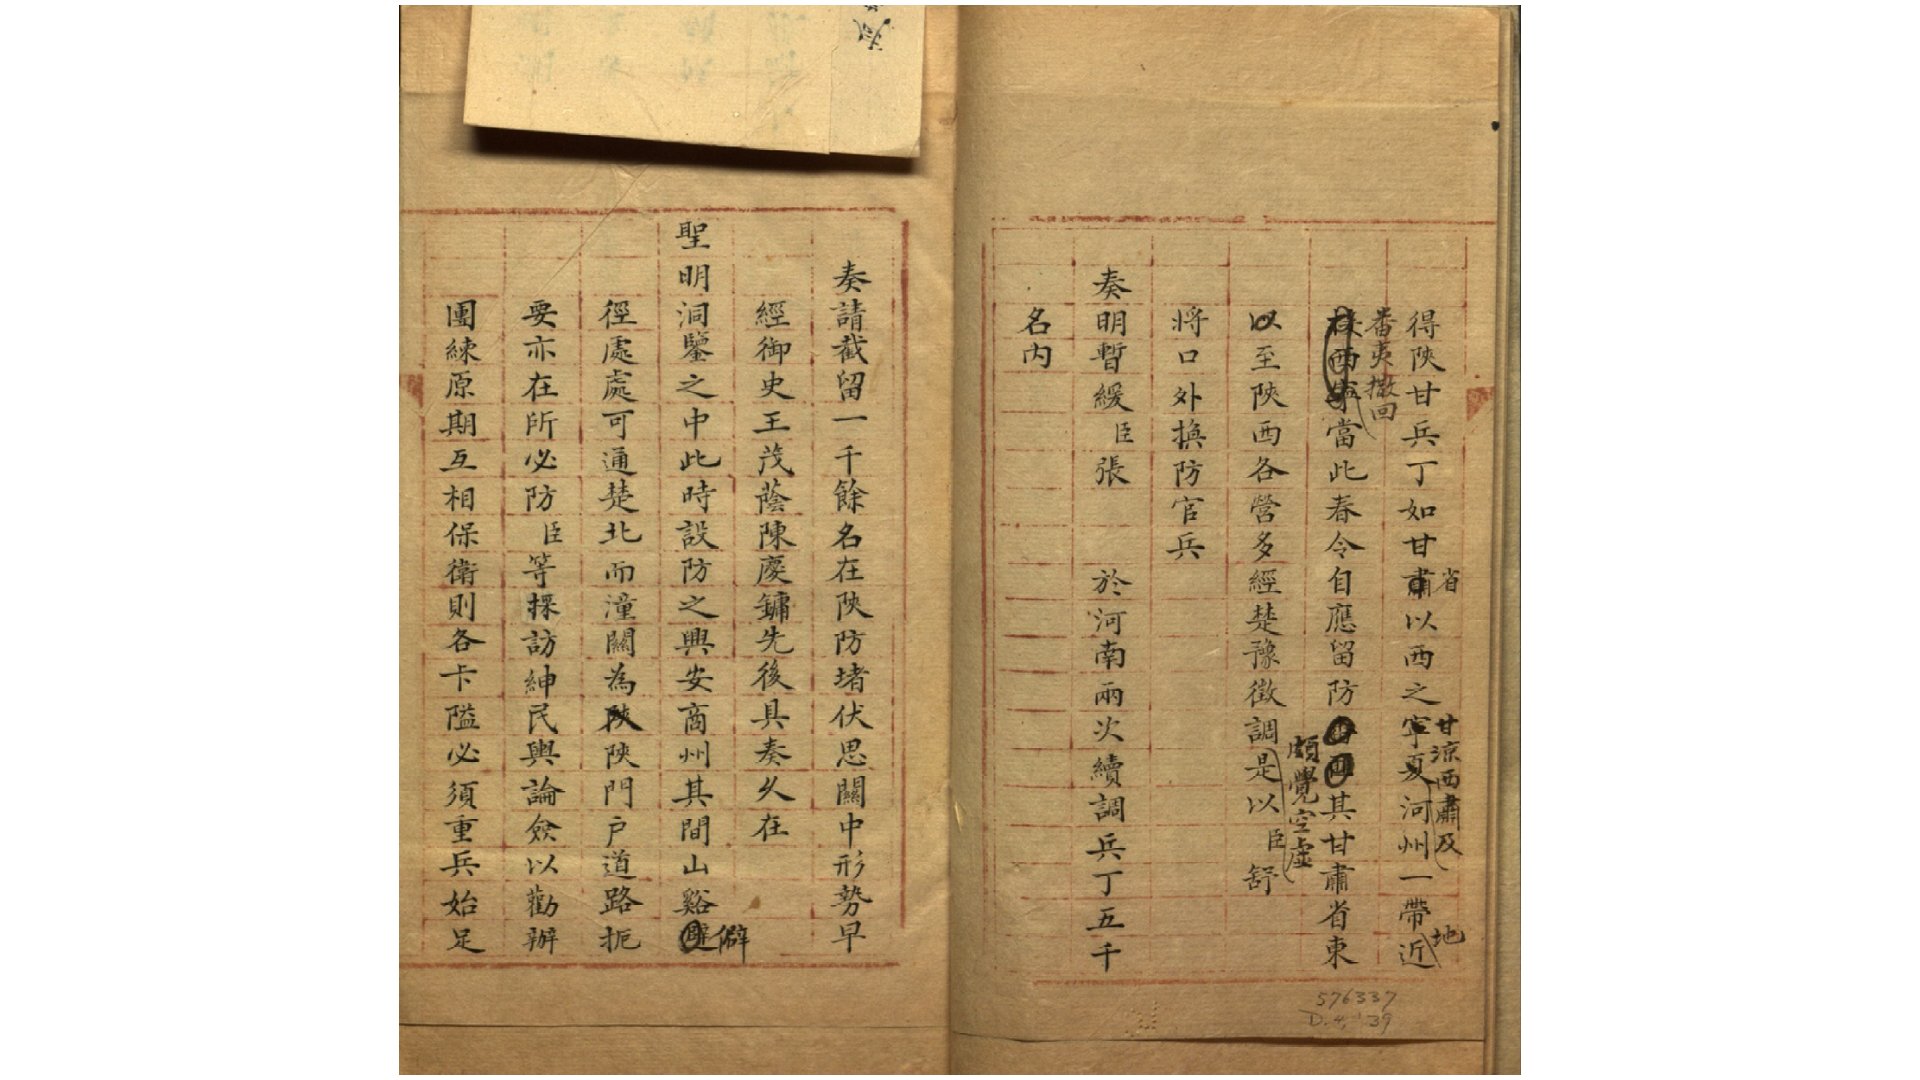 得陝甘兵丁如甘肅以西之寧夏河州一帶近
省
甘涼西肅及
地
番夷撤回
當此春令自應留防其甘肅省東
頗覺空虛
以至陝西各營多經楚豫徵調是以臣舒
將口外換防官兵
奏明暫緩臣張 於河南兩次續調兵丁五千
名內
576337
D.4,'39
奏請截留一千餘名在陝防堵伏思關中形勢早
經御史王茂蔭陳慶鏞先後具奏久在
聖明洞鑒之中此時設防之興安商州其間山谿
僻
徑處處可通楚北而潼關為陝門戶道路扼
要亦在所必防臣等採訪紳民輿論僉以勸辦
團練原期互相保衛則各卡隘必須重兵始足